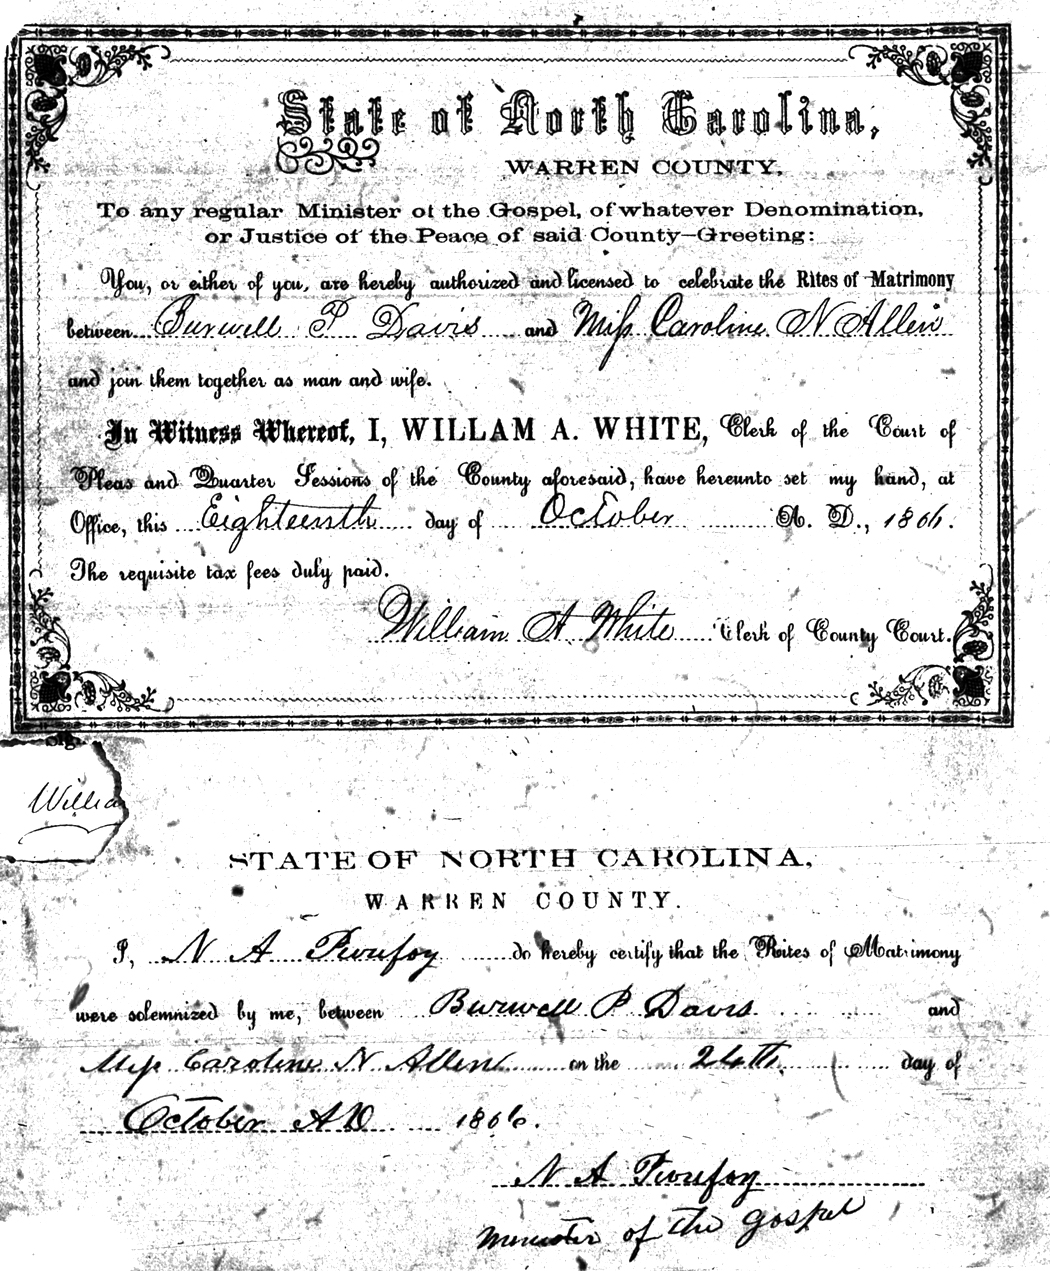 State of North Carolina,
WARREN COUNTY.
To any regular Minister of the Gospel, of whatever Denomination,
or Justice of the Peace of said County—Greeting:
You, or either of you, are hereby authorized and licensed to celebrate the Rites of Matrimony
between Burwell P Davis and Miss Caroline N Allen
and join them together as man and wife.
In Witness Whereof, I, WILLAM A. WHITE, Clerk of the Court of
Pleas and Quarter Sessions of the County aforesaid, have hereunto set my hand, at
Office, this Eighteenth day of October A. D., 1866.
The requisite tax fees duly paid.
William A White Clerk of County Court.
Willia
STATE OF NORTH CAROLINA,
WARREN COUNTY.
I, N A Purefoy do hereby certify that the Rites of Matrimony
were solemnized by me, between Burwell P Davis and
Miss Caroline N Allen on the 24th day of
October AD 1866.
N A Purefoy
minister of the gospel